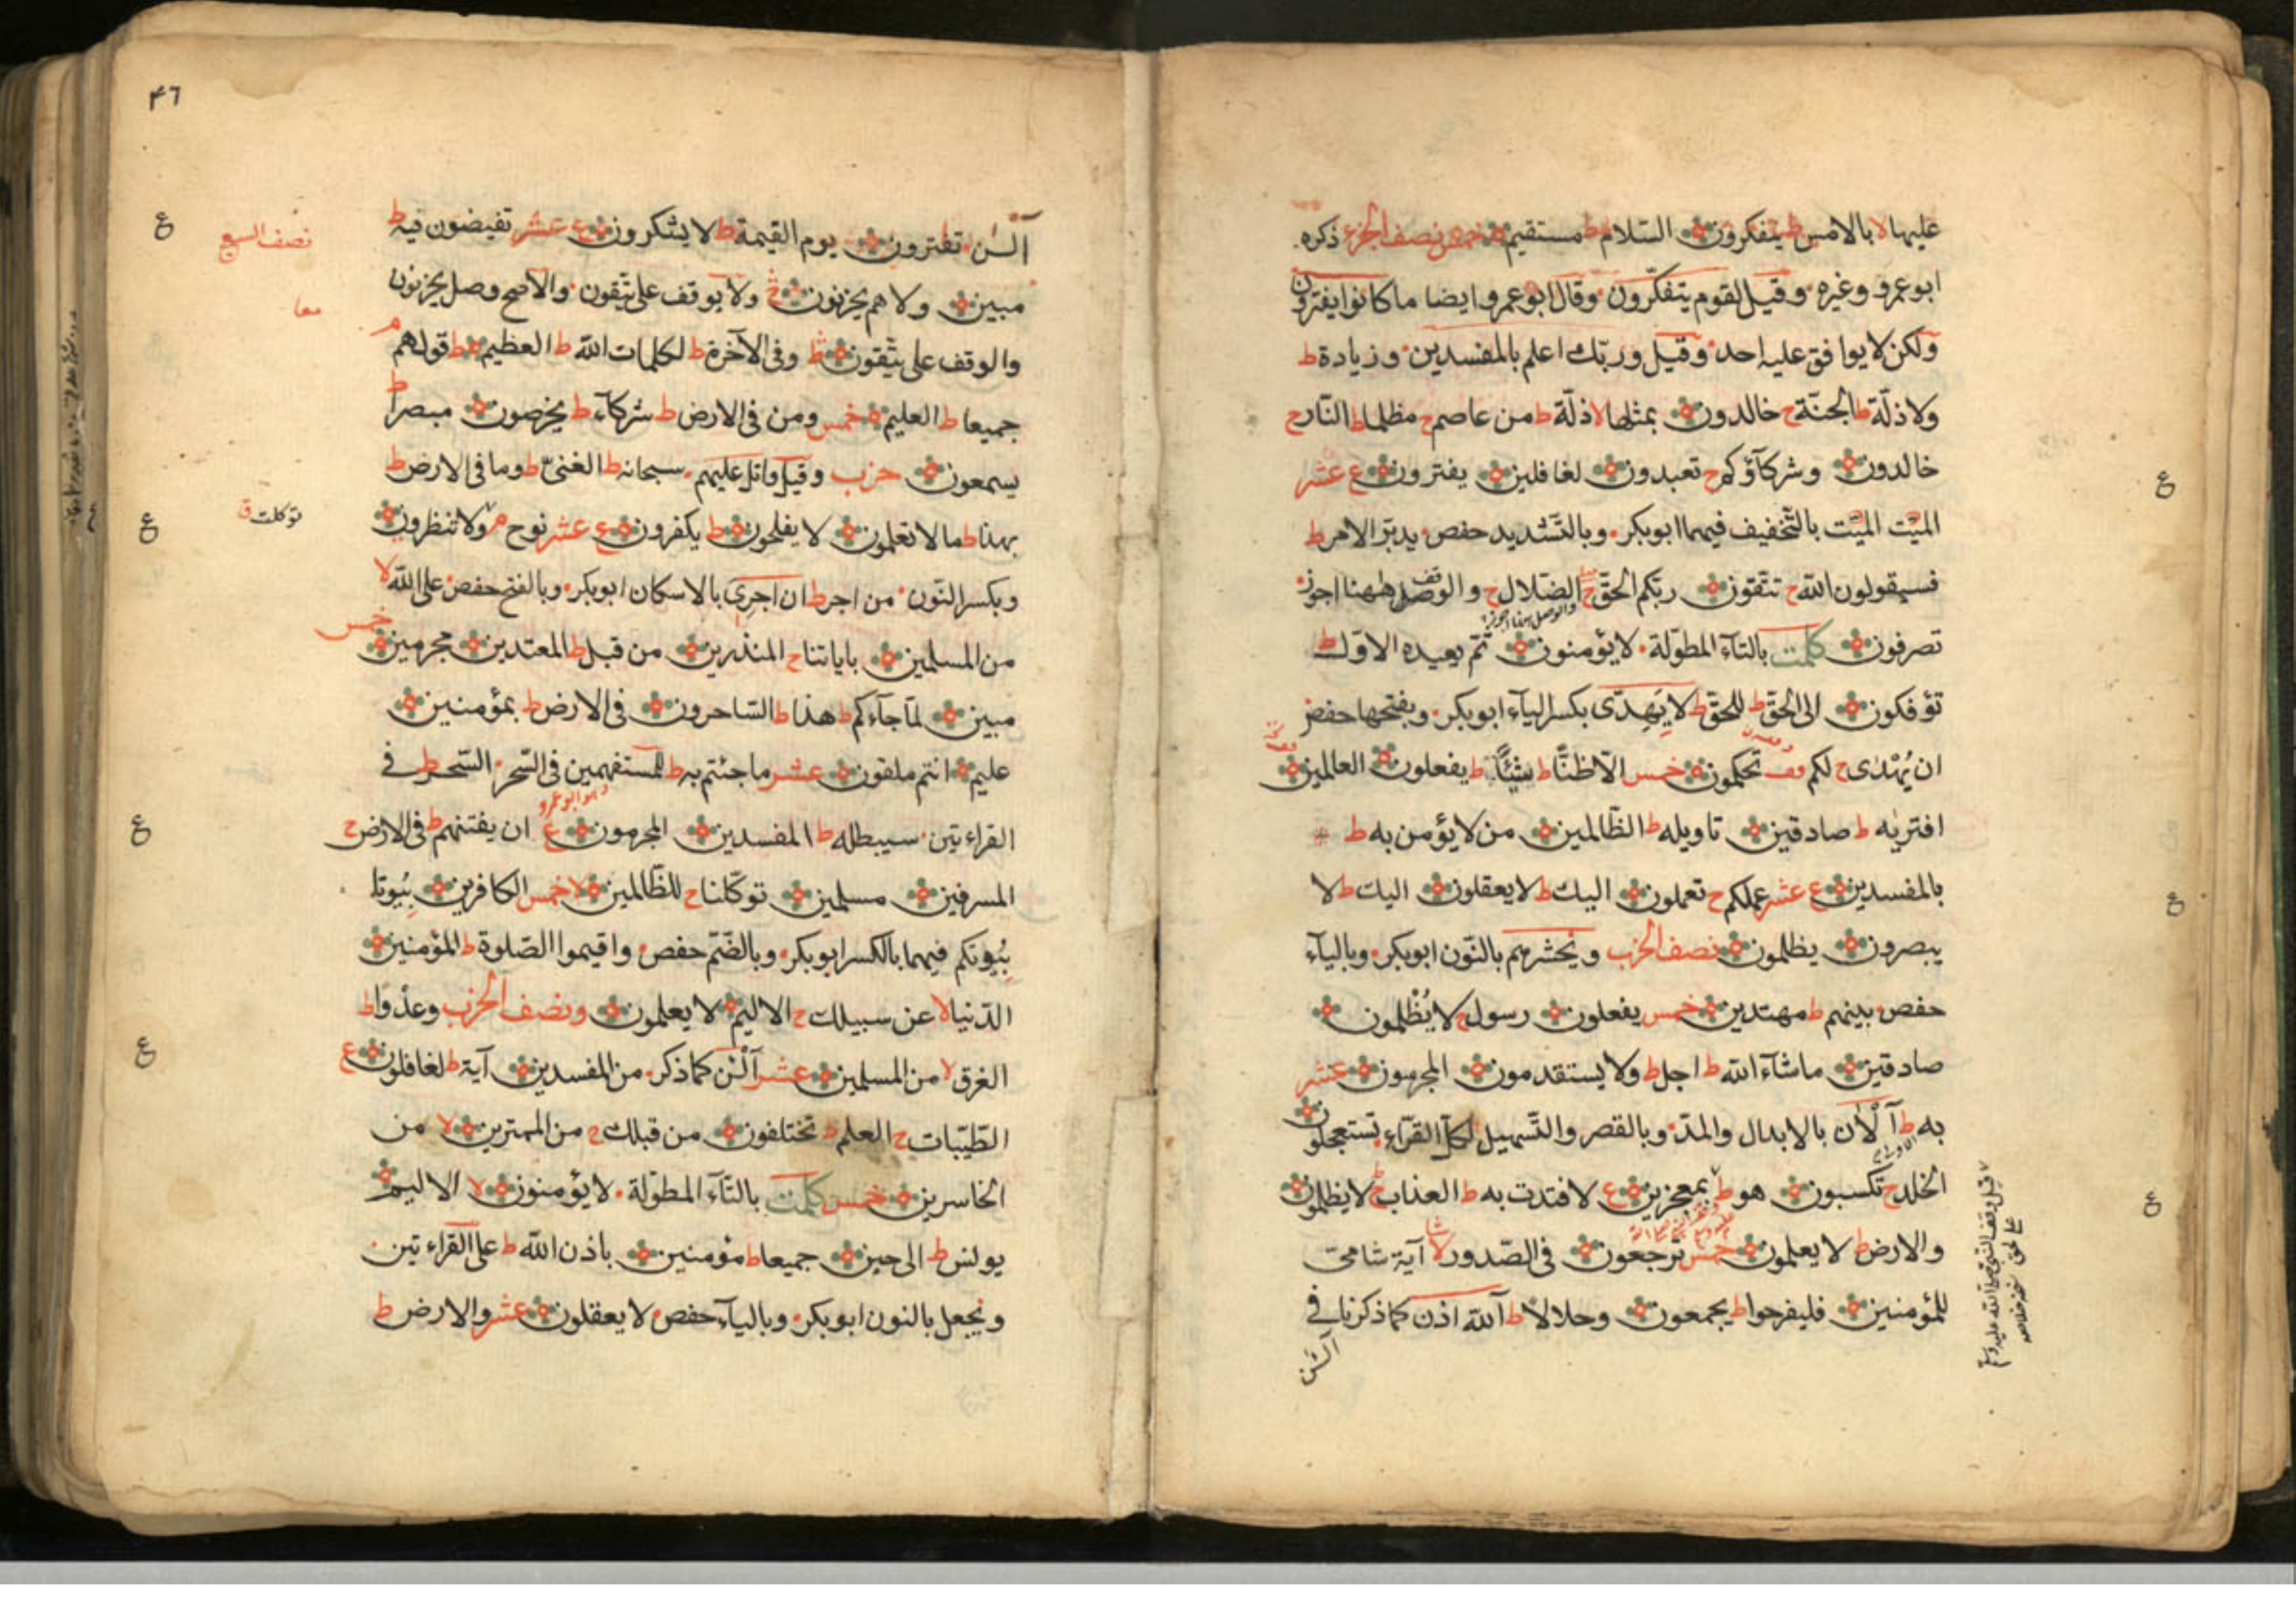 عليها لا بالامس ط يتفكرون السلام ط مستقيم خمس نصف الجزء ذكره
ابو عمرو وغيره وقيل لقوم يتفكرون وقال ابو عمرو ايضا ما كانوا يفترون
ولكن لا يوافق عليه احد وقيل وربك اعلم بالمفسدين وزيادة ط
ولا ذلة ط الجنة ح خالدون بمثلها لا ذلة ط من عاصم ح مظلما ط النار ح
خالدون وشركآؤكم ح تعبدون لغافلين يفترون ع عشر
الميت الميت بالتخفيف فيهما ابوبكر وبالتشديد حفص يدبر الامر ط
فسيقولون الله ح تتقون ربكم الحق ح الضلال ح والوصل ههنا اجوز
تصرفون كلمت بالتآء المطولة لا يؤمنون ثم يعيده الاول ط
تؤفكون الى الحق ط للحق ط لا يهدى بكسر اليآء ابوبكر وبفتحها حفص
ان يهدى ح لكم قف تحكمون خمس الا ظنا ط شيئا ط يفعلون العالمين
افتريه ط صادقين تاويله ط الظالمين من لا يؤمن به ط
بالمفسدين ع عشر عملكم ح تعملون اليك ط لا يعقلون اليك ط لا
يبصرون يظلمون نصف الحزب ونحشرهم بالنون ابوبكر وباليآء
حفص بينهم ط مهتدين خمس يفعلون رسول ح لا يظلمون
صادقين ما شآء الله ط اجل ط ولا يستقدمون المجرمون عشر
به ط آلان بالابدال والمد وبالقصر والتسهيل لكل القرآء تستعجلون
الخلد ح تكسبون هو ط بمعجزين ع لافتدت به ط العذاب ح لا يظلمون
والارض ط لا يعلمون خمس ترجعون فى الصدور لا آية شامى
للمؤمنين فليفرحوا ط يجمعون وحلالا ط آلله اذن كما ذكرنا فى
آلئن
٤٦
آلئن تفترون يوم القيمة ط لا يشكرون ع عشر تفيضون فيه ط
نصف السبع
مبين ولا هم يحزنون ولا يوقف على يتقون والاصح وصل يحزنون
معا
والوقف على يتقون ط وفى الآخرة ط لكلمات الله ط العظيم ط قولهم م
جميعا ط العليم خمس ومن فى الارض ط شركآء ط يخرصون مبصرا ط
يسمعون حزب وقيل واتل عليهم سبحانه ط الغنى ط وما فى الارض ط
بهذا ط ما لا تعلمون لا يفلحون ط يكفرون ع عشر نوح م ولا تنظرون
توكلت ق
وبكسر النون من اجر ط ان اجرى بالاسكان ابوبكر وبالفتح حفص على الله لا
من المسلمين باياتنا ح المنذرين من قبل ط المعتدين مجرمين خمس
مبين لما جآءكم ط هذا ط الساحرون فى الارض ط بمؤمنين
عليم انتم ملقون عشر ما جئتم به ط للمستفهمين فى السحر السحر ط فى
القراءتين سيبطله ط المفسدين المجرمون ع ان يفتنهم ط فى الارض ح
المسرفين مسلمين توكلنا ح للظالمين لا خمس الكافرين بيوتا
بيوتكم فيهما بالكسر ابوبكر وبالضم حفص واقيموا الصلوة ط المؤمنين
الدنيا لا عن سبيلك ح الاليم لا يعلمون ونصف الحزب وعدوا ط
الغرق لا من المسلمين عشر آلئن كما ذكر من المفسدين آية ط لغافلون ع
الطيبات ح العلم ط تختلفون من قبلك ح من الممترين لا من
الخاسرين خمس كلمت بالتآء المطولة لا يؤمنون لا الاليم
يونس ط الى حين جميعا ط مؤمنين باذن الله ط على القراءتين
ونجعل بالنون ابوبكر وباليآء حفص لا يعقلون عشر والارض ط